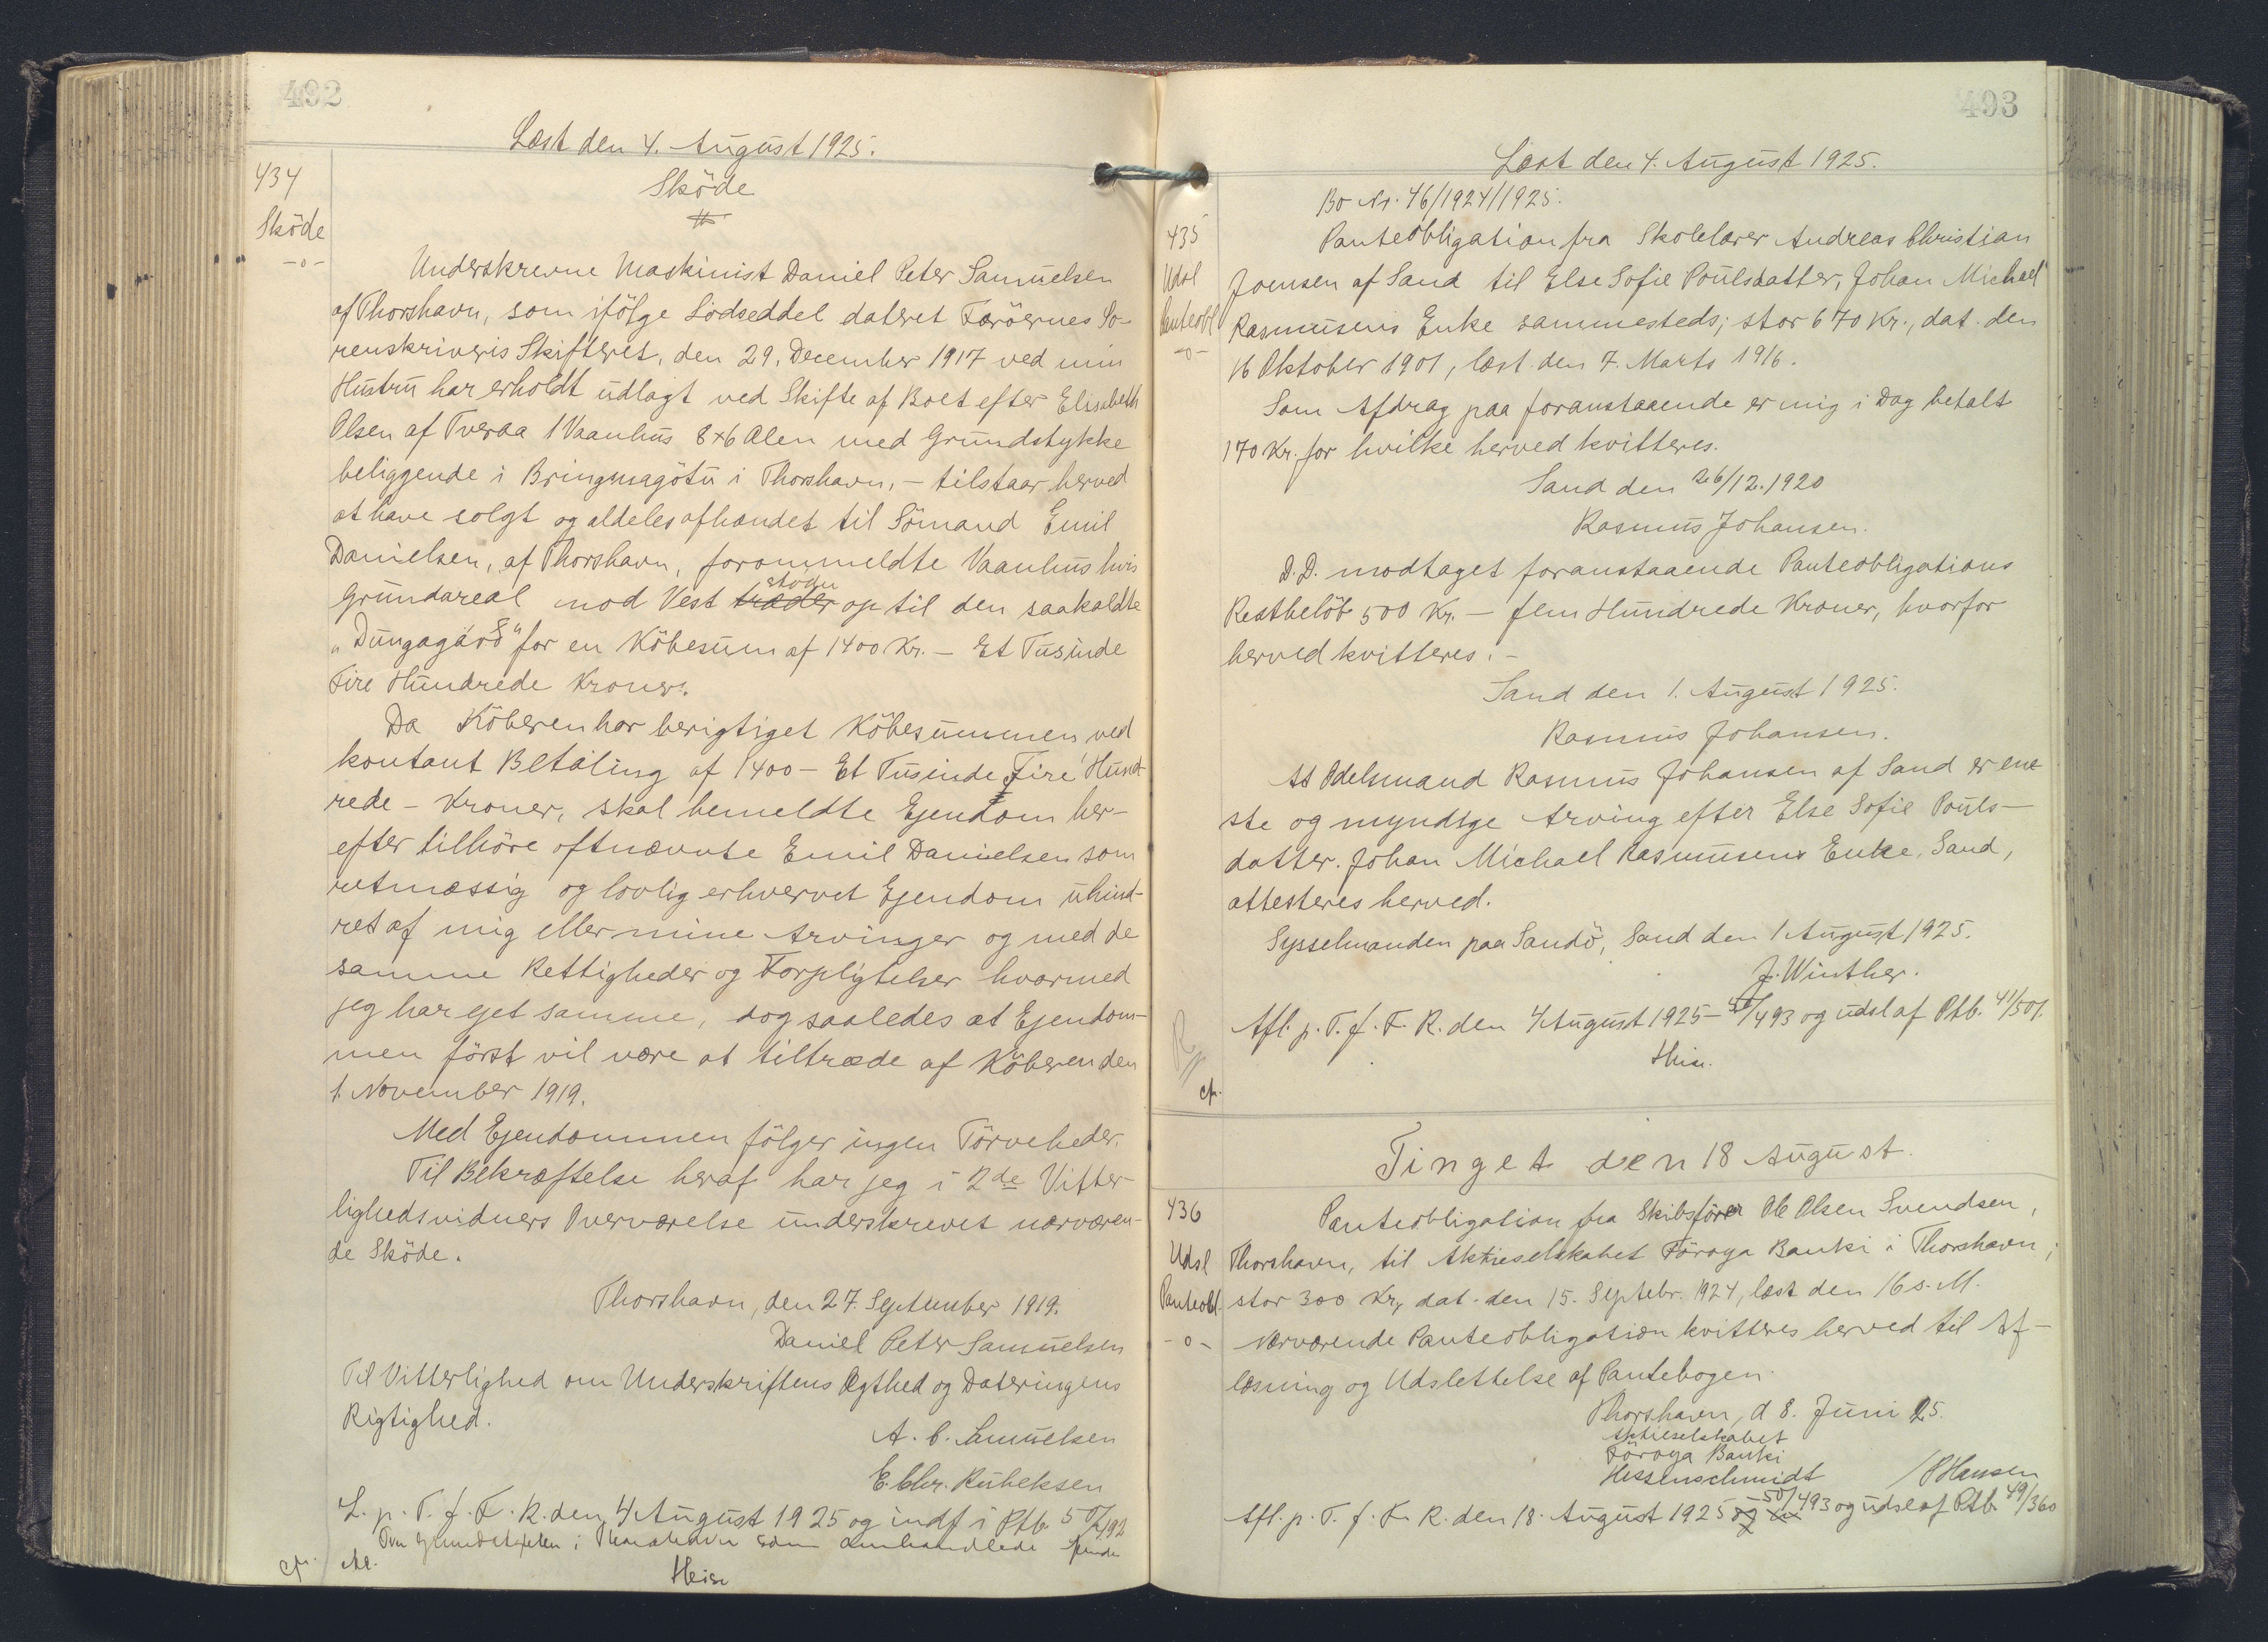 492
Læst den 4. August 1925.
434
Sköde
-o-
Sköde
Underskrevne Maskinist Daniel Peter Samuelsen
af Thorshavn, som ifölge Lodseddel dateret Færöernes So-
renskriveris Skifteret, den 29. December 1917 ved min
Hustru har erholdt udlagt ved Skifte af Boet efter Elisabeth
Olsen af Tveraa 1 Vaanhus 8x6 Alen med Grundstykke
beliggende i Bringsnagötu i Thorshavn, - tilstaar herved
at have solgt og aldeles afhændet til Sömand Emil
Danielsen, af Thorshavn, forommeldte Vaanhus hvis
Grundareal mod Vest træder støder op til den saakaldte
"Dungagárð" for en Köbesum af 1400 Kr. - Et Tusinde
Fire Hundrede Kroner.
Da Köberen har berigtiget Köbesummen ved
kontant Betaling af 1400 - Et Tusinde Fire Hund-
rede - Kroner, skal bemeldte Ejendom her-
efter tilhöre oftnævnte Emil Danielsen som
retmæssig og lovlig erhvervet Ejendom uhind-
ret af mig eller mine Arvinger og med de
samme Rettigheder og Forpligtelser hvormed
jeg har ejet samme, dog saaledes at Ejendom-
men först vil være at tiltræde af Köberen den
1. November 1919.
Med Ejendommen fölger ingen Törveheder.
Til Bekræftelse heraf har jeg i 2de Vitter-
lighedsvidners Overværelse underskrevet nærværen-
de Sköde.
Thorshavn, den 27. September 1919.
Daniel Peter Samuelsen
Til Vitterlighed om Underskriftens Ægthed og Dateringens
Rigtighed.
A. C. Samuelsen
E. Chr. Rubeksen
L. p. T. f. F. R. den 4 August 1925 og indf i Ptb. 50/492
i Thorshavn som omhandlede
Heise
493
Læst den 4. August 1925.
Bo Nr. 46/1924/1925.
435
Udsl
Panteobl
-o-
Panteobligation fra Skolelærer Andreas Christian
Joensen af Sand til Else Sofie Poulsdatter, Johan Michael
Rasmusens Enke sammesteds; stor 670 Kr., dat. den
16 Oktober 1901, læst den 7. Marts 1916.
Som Afdrag paa foranstaaende er mig i Dag betalt
170 Kr. for hvilke herved kvitteres.
Sand den 26/12.1920
Rasmus Johansen.
D.D. modtaget foranstaaende Panteobligations
Restbelöb 500 Kr. - fem Hundrede Kroner, hvorfor
herved kvitteres. -
Sand den 1. August 1925.
Rasmus Johansen.
At Odelsmand Rasmus Johansen af Sand er ene-
ste og myndige Arving efter Else Sofie Pouls-
datter. Johan Michael Rasmusens Enke, Sand,
attesteres herved.
Sysselmanden paa Sandö, Sand den 1 August 1925.
J. Winther.
Afl. p. T. f. F. R. den 4 August 1925 - 50/493 og udsl af Ptb. 41/501.
Heise.
Tinget den 18 August.
436
Udsl
Panteobl.
-o-
Panteobligation fra Skibsförer Ole Olsen Svendsen,
Thorshavn, til Aktieselskabet Föroya Banki i Thorshavn;
stor 300 Kr, dat. den 15. Septebr. 1924, læst den 16 s. M.
Nærværende Panteobligation kvitteres herved til Af-
læsning og Udslettelse af Pantebogen.
Thorshavn, d 8. Juni 25.
Aktieselskabet
Föroya Banki
Hessenschmidt / P Hansen
Afl. p. T. f. F. R. den 18. August 1925 - 50/493 og udsl af Ptb. 49/360